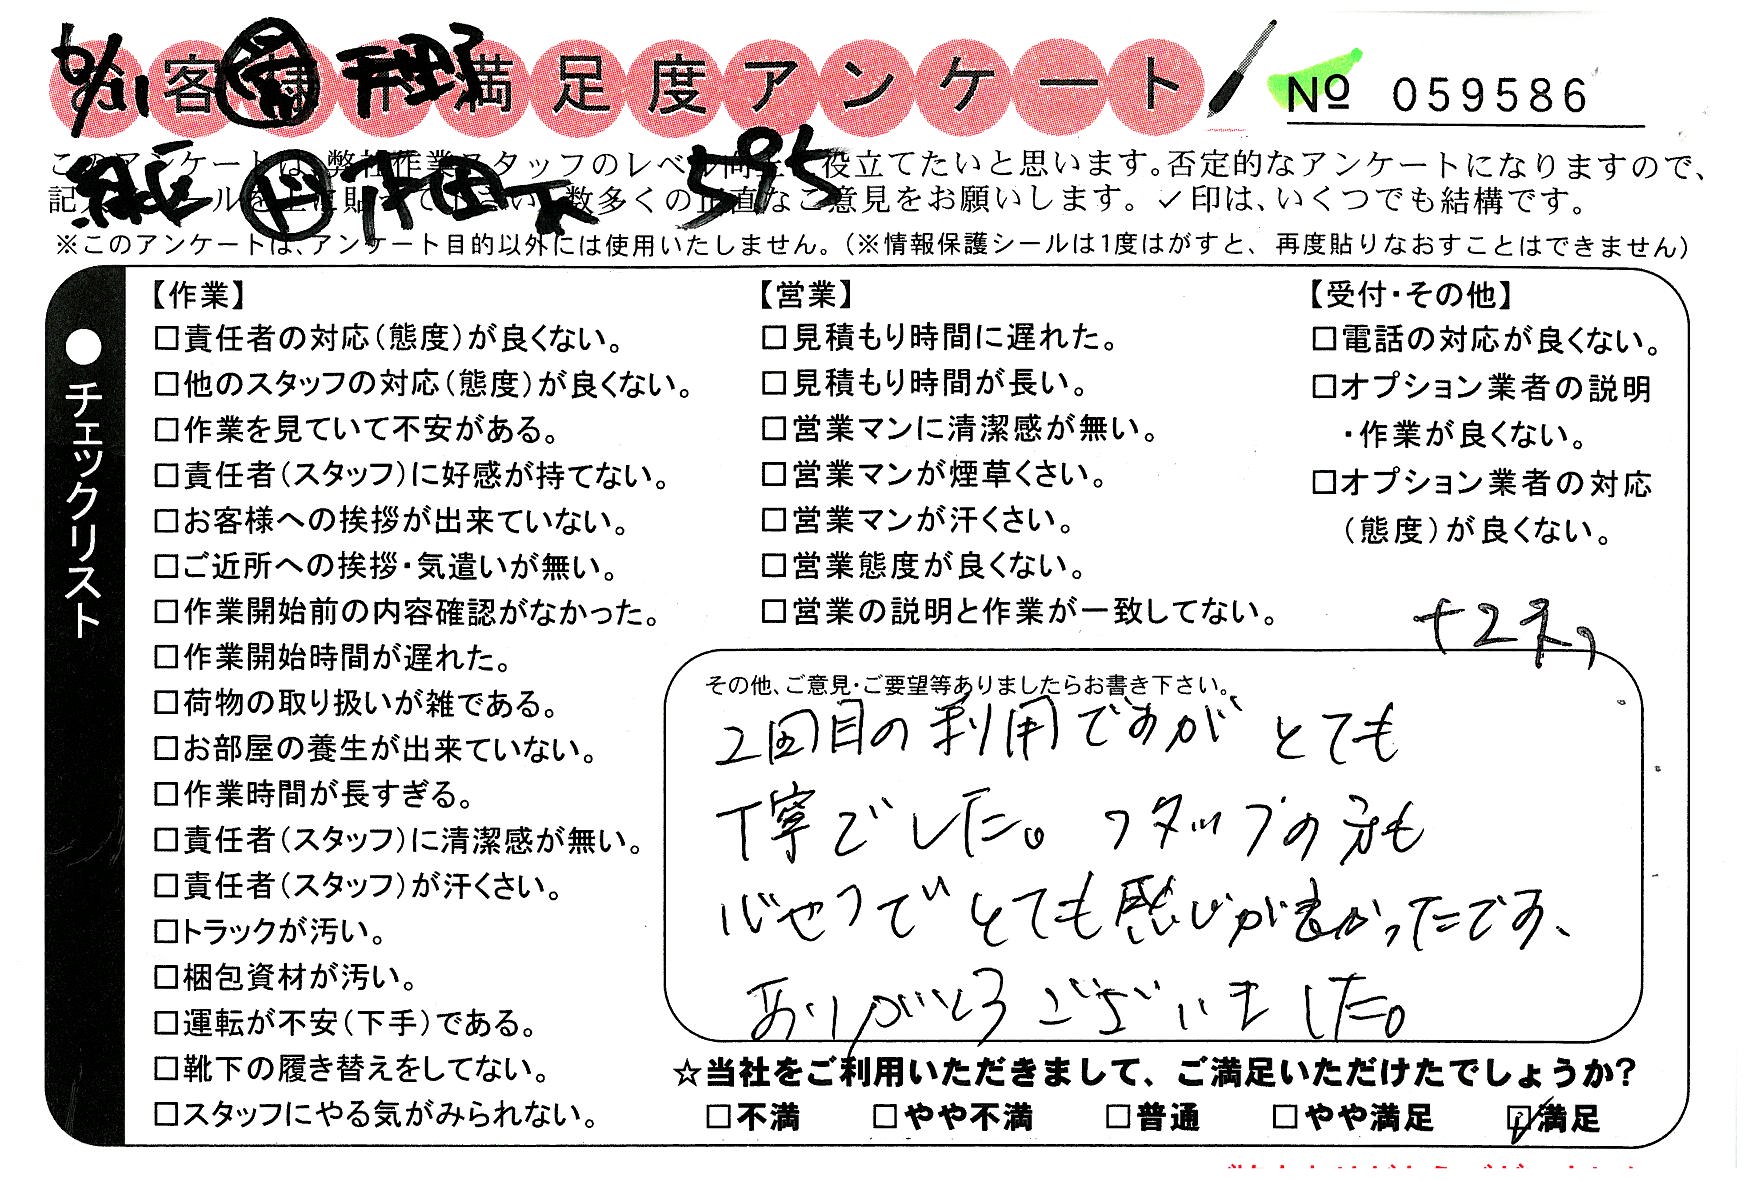 お客様ご満足度アンケート
№ 059586
6/11
このアンケートは、弊社作業スタッフのレベル向上に役立てたいと思います。否定的なアンケートになりますので、
数多くの正直なご意見をお願いします。✓印は、いくつでも結構です。
595
※このアンケートは、アンケート目的以外には使用いたしません。（※情報保護シールは1度はがすと、再度貼りなおすことはできません）
●チェックリスト
【作業】
□責任者の対応（態度）が良くない。
□他のスタッフの対応（態度）が良くない。
□作業を見ていて不安がある。
□責任者（スタッフ）に好感が持てない。
□お客様への挨拶が出来ていない。
□ご近所への挨拶・気遣いが無い。
□作業開始前の内容確認がなかった。
□作業開始時間が遅れた。
□荷物の取り扱いが雑である。
□お部屋の養生が出来ていない。
□作業時間が長すぎる。
□責任者（スタッフ）に清潔感が無い。
□責任者（スタッフ）が汗くさい。
□トラックが汚い。
□梱包資材が汚い。
□運転が不安（下手）である。
□靴下の履き替えをしてない。
□スタッフにやる気がみられない。
【営業】
□見積もり時間に遅れた。
□見積もり時間が長い。
□営業マンに清潔感が無い。
□営業マンが煙草くさい。
□営業マンが汗くさい。
□営業態度が良くない。
□営業の説明と作業が一致してない。
【受付・その他】
□電話の対応が良くない。
□オプション業者の説明
・作業が良くない。
□オプション業者の対応
（態度）が良くない。
その他、ご意見・ご要望等ありましたらお書き下さい。
2回目の利用ですがとても
丁寧でした。スタッフの方も
とても感じが良かったです、
ありがとうございました。
☆当社をご利用いただきまして、ご満足いただけたでしょうか?
□不満 □やや不満 □普通 □やや満足 ☑満足